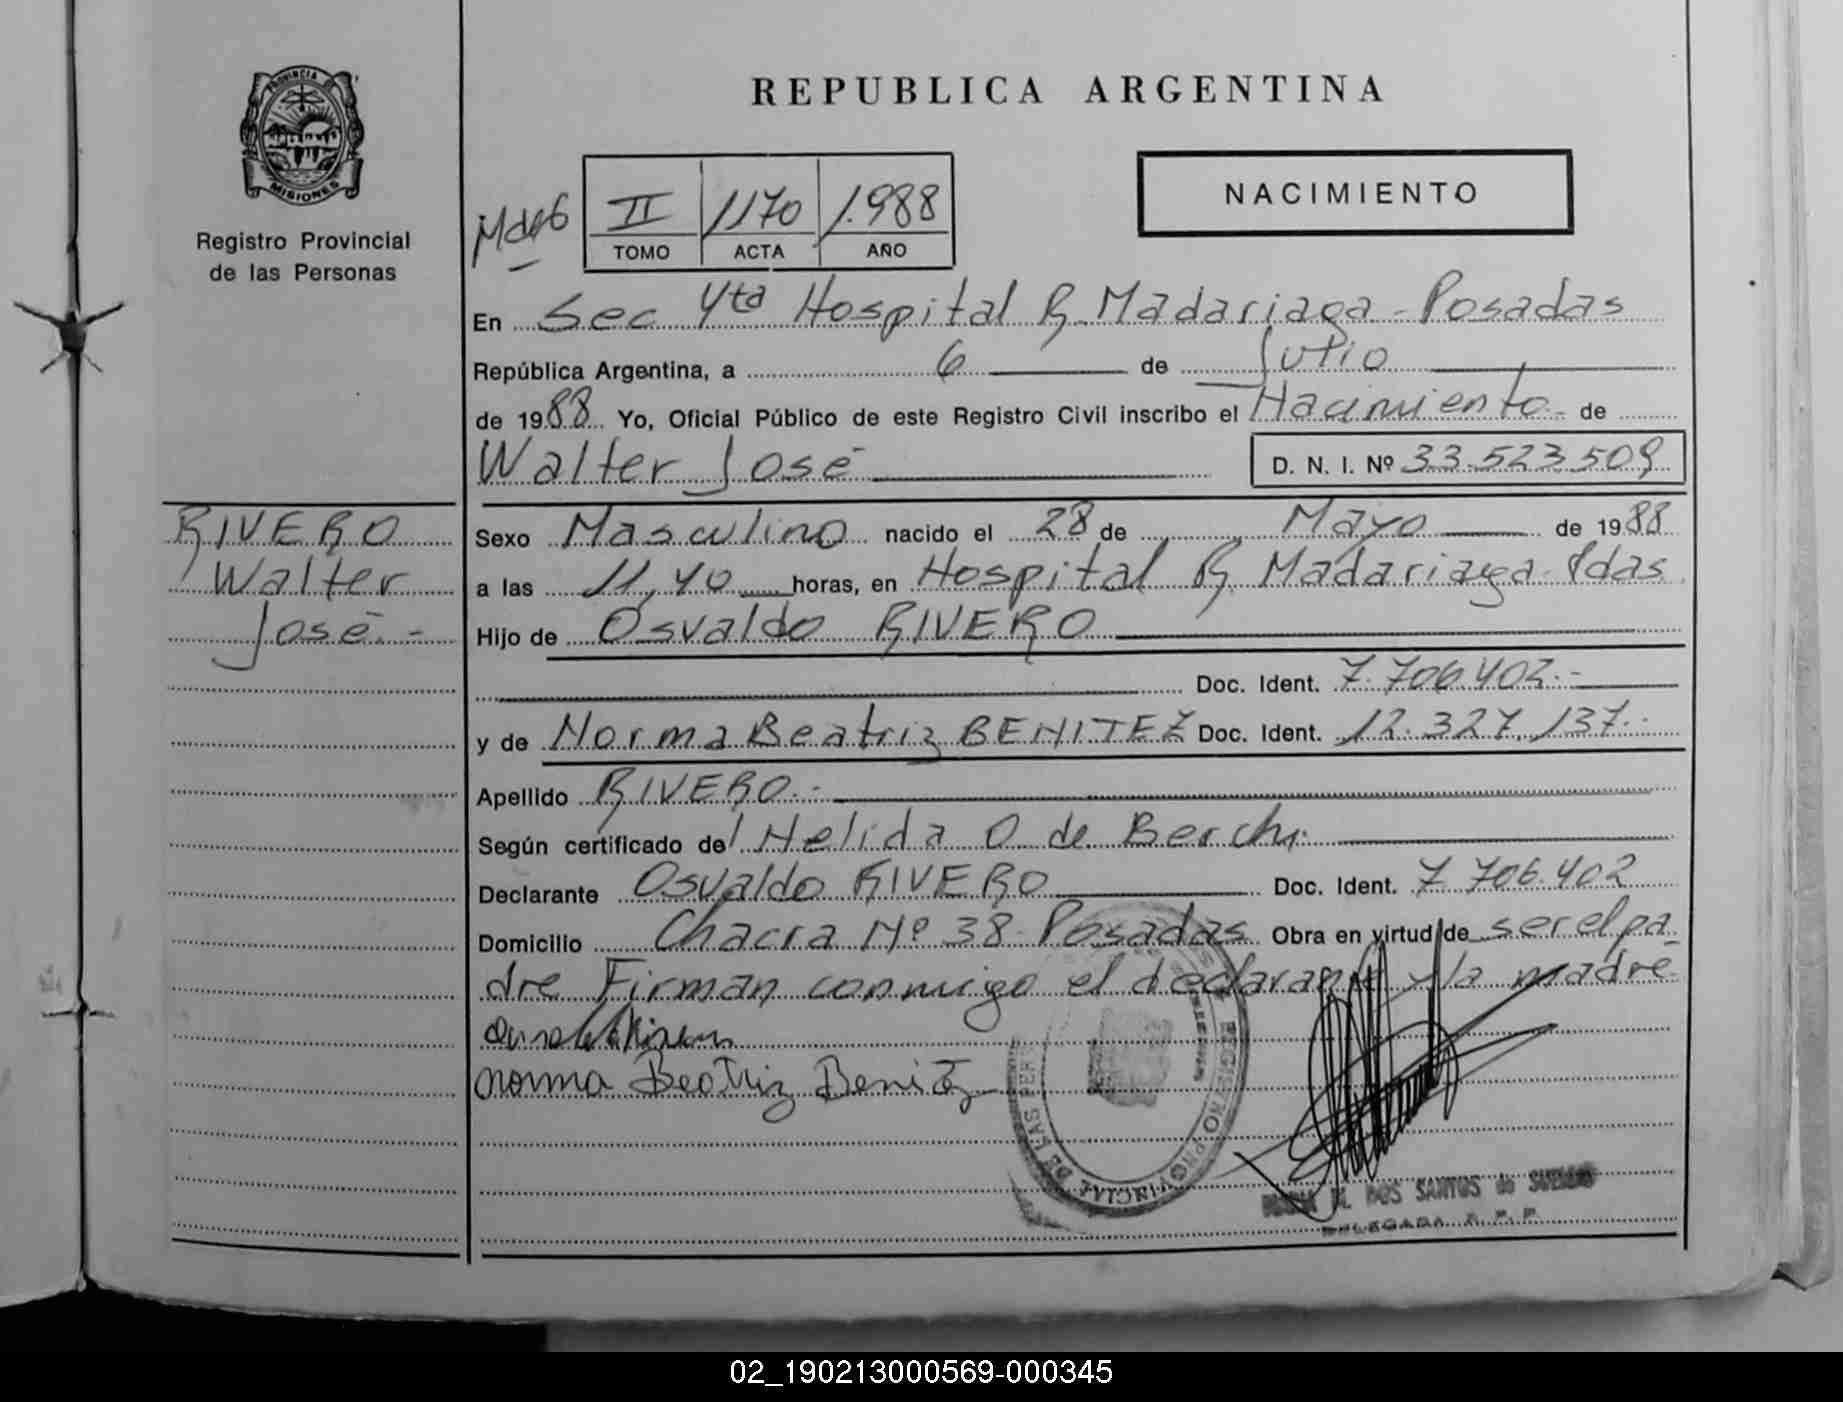 PROVINCIA DE
MISIONES
Registro Provincial
de las Personas
REPUBLICA ARGENTINA
NACIMIENTO
II 1170 1.988
TOMO ACTA AÑO
En Sec 4ta Hospital R. Madariaga - Posadas
República Argentina, a 6 de Julio
de 1988 Yo, Oficial Público de este Registro Civil inscribo el Nacimiento - de
Walter José
D. N. I. Nº 33.523.509
RIVERO
Walter
José. -
Sexo Masculino nacido el 28 de Mayo de 1988
a las 11,40 horas, en Hospital R. Madariaga - Pdas
Hijo de Osvaldo RIVERO
Doc. Ident. 7.706.402.-
y de Norma Beatriz BENITEZ Doc. Ident. 12.327.137.-
Apellido RIVERO.-
Según certificado de Nelida O de Berchi
Declarante Osvaldo RIVERO Doc. Ident. 7.706.402
Domicilio Chacra Nº 38 - Posadas Obra en virtud de ser el pa-
dre Firman conmigo el declarante y la madre
Norma Beatriz Benitez
REGISTRO PROVINCIAL DE LAS PERS
M. DOS SANTOS de
DELEGADA R. P. P.
02_190213000569-000345